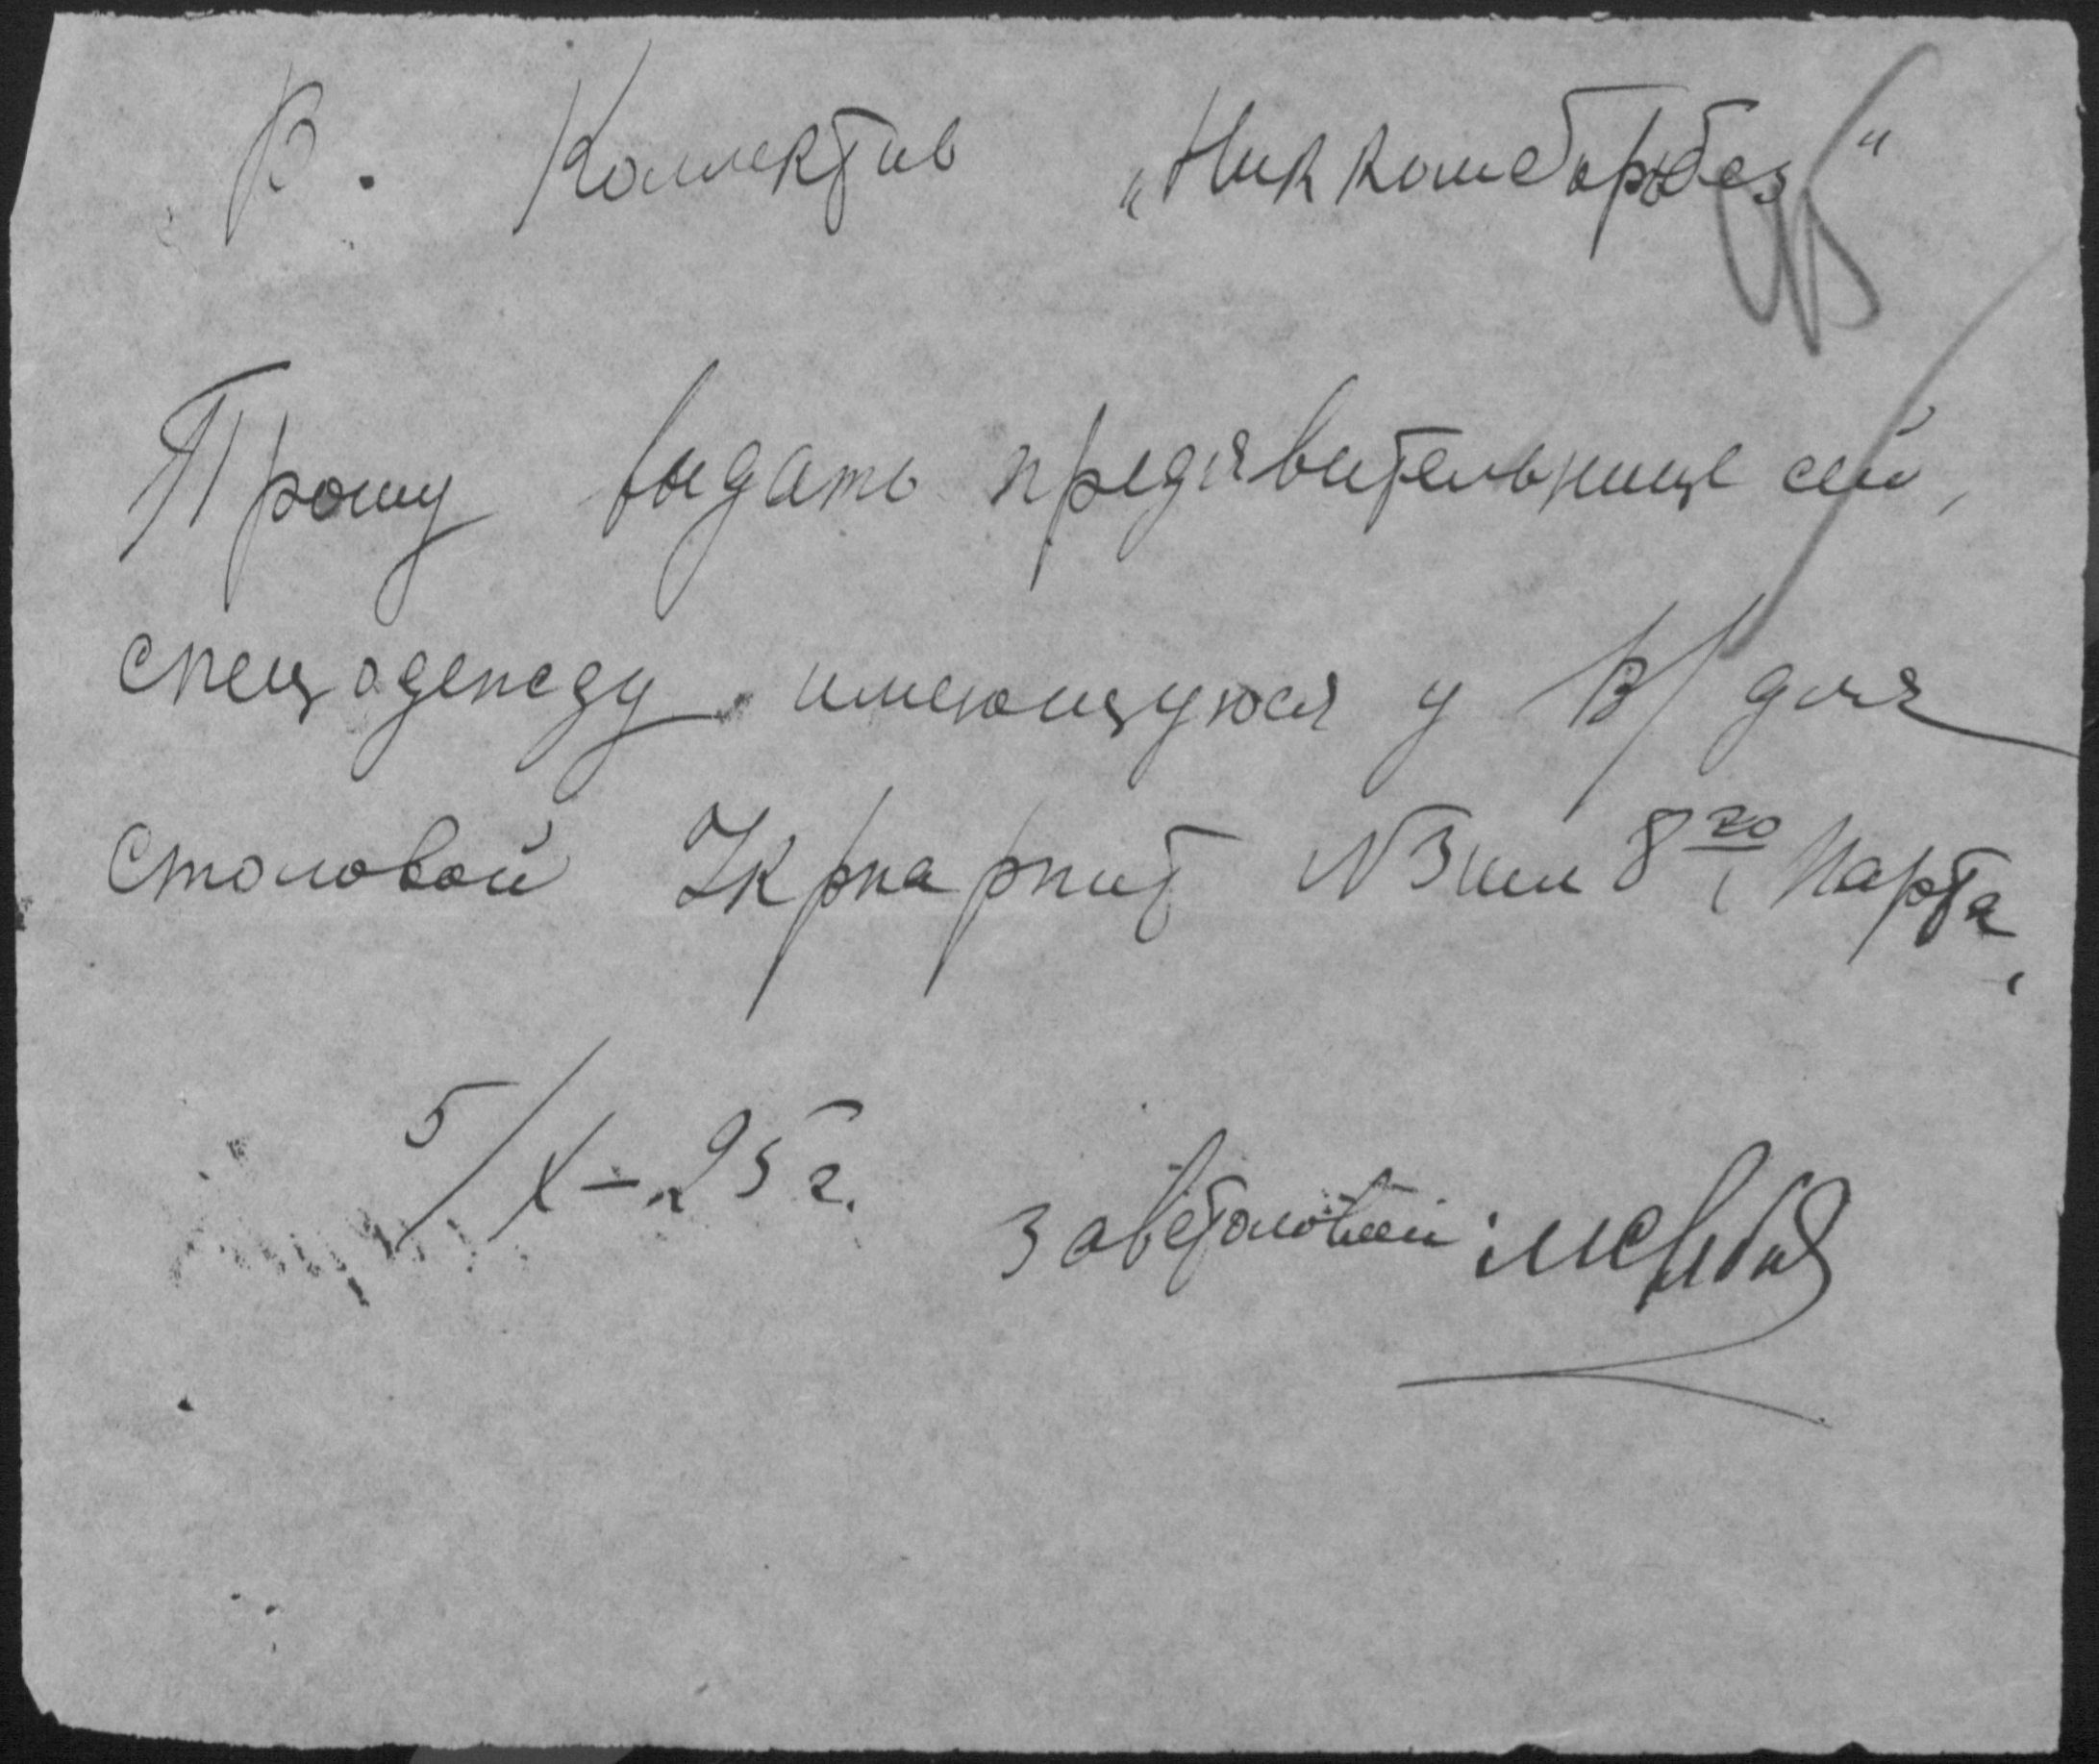 В. Коллектив „Никкомборбез“
Прошу выдать предявительнице сей,
спецодежду имеющуюся у В/ для
столовой Укрнарпит №3 им 8го Марта,
5/X–25 г.
Завстоловой: